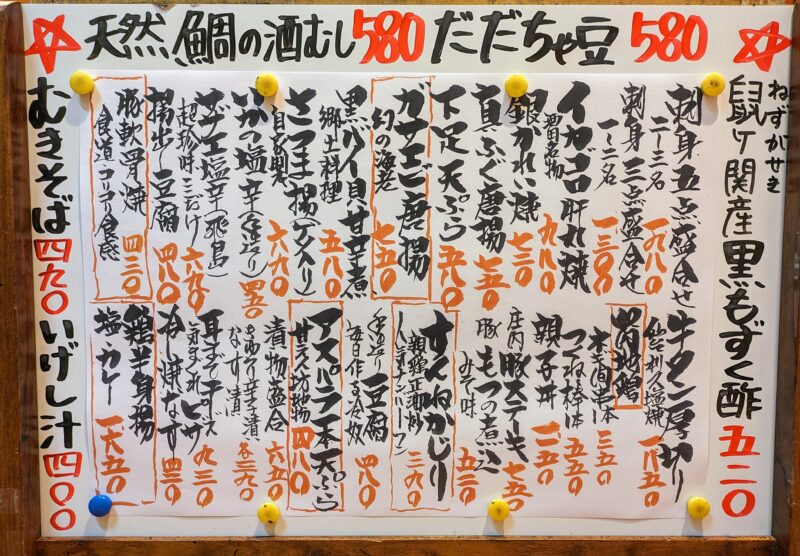 天然鯛の酒むし580 だだちゃ豆 580
ねずがせき
鼠ヶ関産黒もずく酢 五二〇
刺身五点盛合せ
二〜三名 一九八〇
刺身三点盛合せ
一〜二名 一三〇〇
イカゴロ肝れ焼 九八〇
酒田名物
銀がれい焼 七三〇
真ふぐ唐揚 七五〇
下足天ぷら 五八〇
ガサエビ唐揚
幻の海老 七五〇
黒バイ貝甘辛煮
郷土料理 五八〇
さつま揚(ゲソ入り)
自家製 六八〇
いかの塩辛(手造り) 四五〇
サザエ塩辛(飛島)
超珍味ここだけ 六八〇
揚出し豆腐 四八〇
豚軟骨焼
食道コリコリ食感 四三〇
牛タン厚切り
一八五〇
つくね棒 五五〇
親子丼
庄内豚ステーキ 七五〇
豚もつの煮込
みそ味 五三〇
すくねかじり
二九〇
手造り豆腐
毎日作る冷奴 四八〇
アスパラ一本天ぷら
四八〇
漬物盛合 六五〇
なす漬 各三九〇
耳まで チーズ
ピザ 九三〇
冷し焼なす 四三〇
鶏半身揚
塩・カレー 一六五〇
むきそば 四九〇 いげし汁 四〇〇